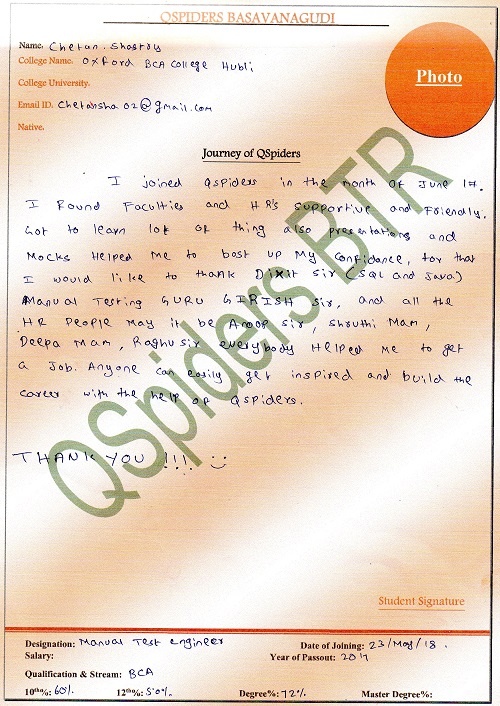 QSPIDERS BASAVANAGUDI
Name. Chetan. Shastry
College Name. Oxford BCA College Hubli
College University.
Email ID. Chetansha02@gmail.com
Native.
Photo
Journey of QSpiders
I joined Qspiders in the month of June 17.
I Found Faculties and HR's supportive and Friendly.
Got to learn lot of thing also presentations and
Mocks Helped Me to bost up My Confidance, for that
I would like to thank Dixit Sir (SQL and Java)
Manual Testing GURU GIRISH Sir, and all the
HR People May it be Anoop Sir, Shruthi Mam,
Deepa Mam, Raghu sir everybody Helped me to get
a Job. Anyone can easily get inspired and build the
career with the help of Qspiders.
THANK YOU !!! :)
QSpiders BTR
Student Signature
Designation: Manual Test Engineer
Date of Joining: 23/May/18.
Salary:
Year of Passout: 2017
Qualification & Stream: BCA
10th%: 60% 12th%: 50% Degree%: 72% Master Degree%: